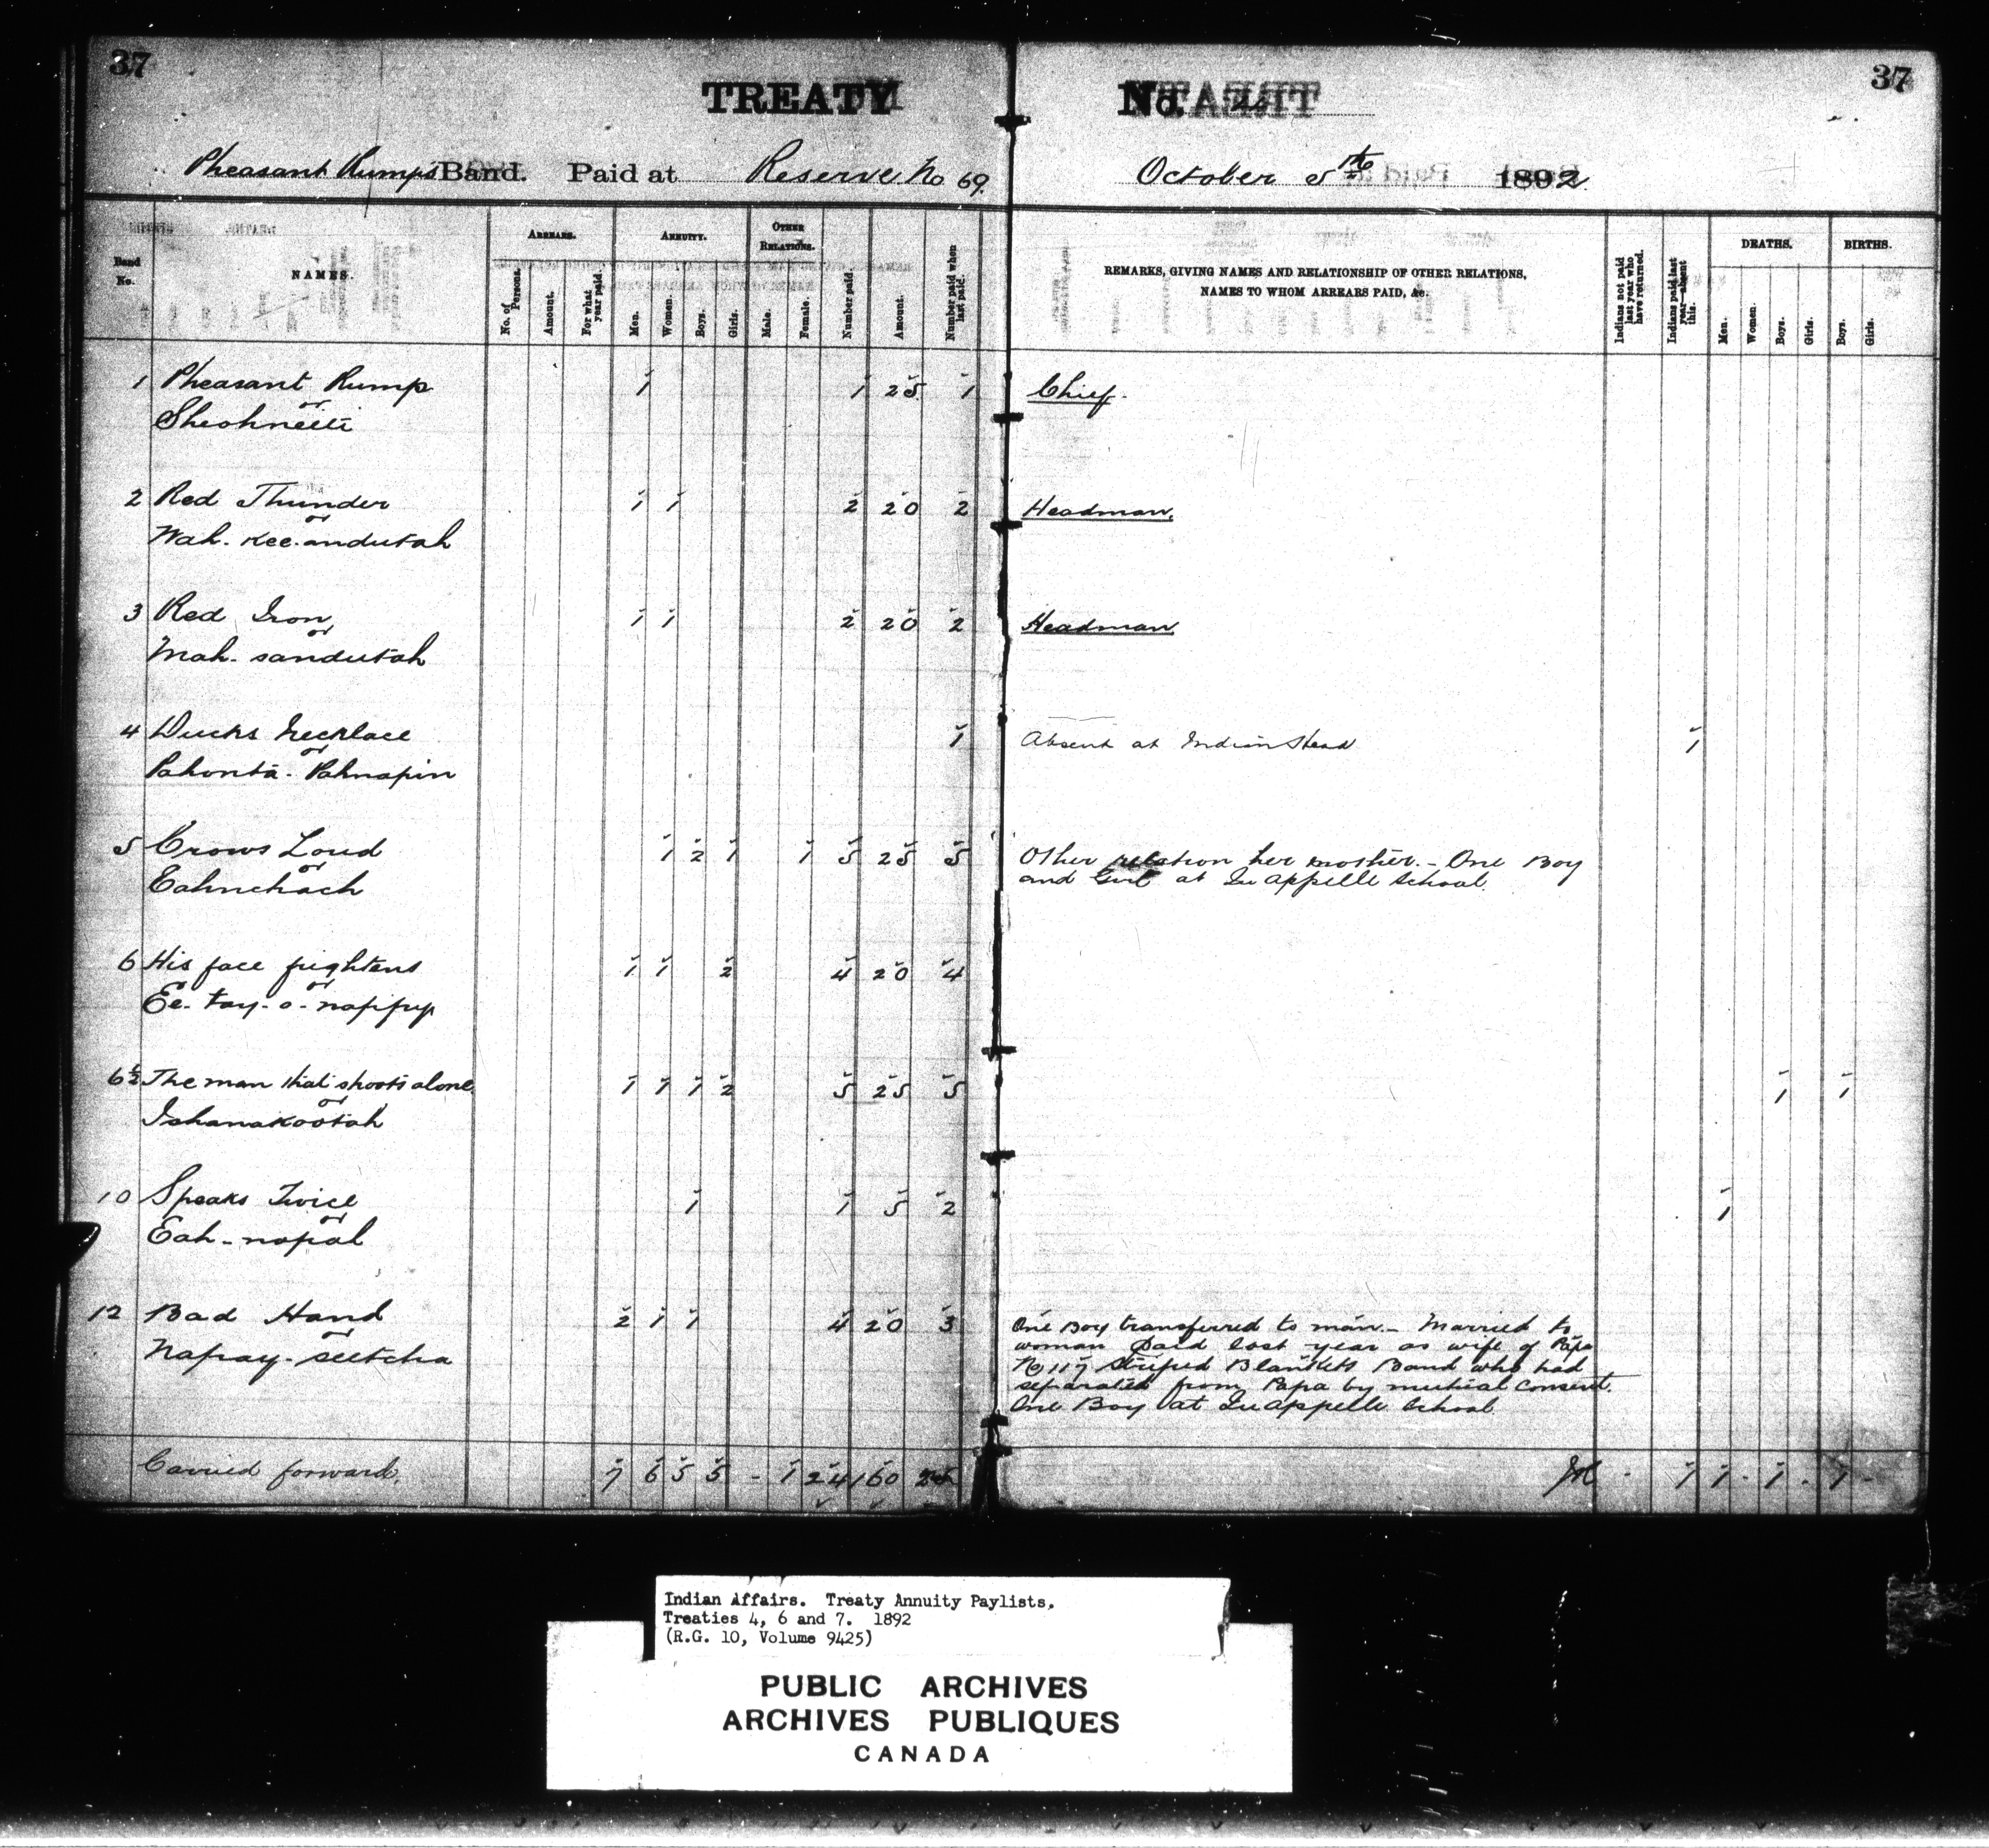 37
TREATY
Pheasant Rump's Band. Paid at Reserve No 69.
Band No.
NAMES.
ARREARS.
No. of Persons.
Amount.
For what year paid.
ANNUITY.
Men.
Women.
Boys.
Girls.
OTHER RELATIONS.
Male.
Female.
Number paid.
Amount.
Number paid when last paid.
1 Pheasant Rump 1 1 25 1
or
2 Red Thunder 1 1 2 20 2
or
Wah-kee-andutah
3 Red Iron 1 1 2 20 2
or
Mah-sandutah
4 Ducks Necklace 1
or
Pahonta-Pahnapin
5 Crows Loud 1 2 1 1 5 25 5
or
Eahnchach
6 His face frightens 1 1 2 4 20 4
or
Ee-tay-o-nappy
6½ The man that shoots alone 1 1 1 2 5 25 5
or
Ishanakootah
10 Speaks Twice 1 1 5 2
or
Eah-nopah
12 Bad Hand 2 1 1 4 20 3
or
Napay-seetcha
Carried forward. 7 6 5 5 - 1 24 160
37
No.
October 5th 1892
REMARKS, GIVING NAMES AND RELATIONSHIP OF OTHER RELATIONS,
NAMES TO WHOM ARREARS PAID, &c.
Indians not paid last year who have returned.
Indians paid last year—absent this.
DEATHS.
Men.
Women.
Boys.
Girls.
BIRTHS.
Boys.
Girls.
Chief.
Headman.
Headman
Absent at Indian Head 1
Other relation her mother. - One Boy
and Girl at Qu'appelle School.
1 1
1
One Boy transferred to man. - Married to
woman paid last year as wife of Papa
No 117 Striped Blankets Band who had
separated from Papa by mutual consent.
One Boy at Qu'appelle School
- 1 1 - 1 - 1 -
Indian Affairs. Treaty Annuity Paylists,
Treaties 4, 6 and 7. 1892
(R.G. 10, Volume 9425)
PUBLIC ARCHIVES
ARCHIVES PUBLIQUES
CANADA